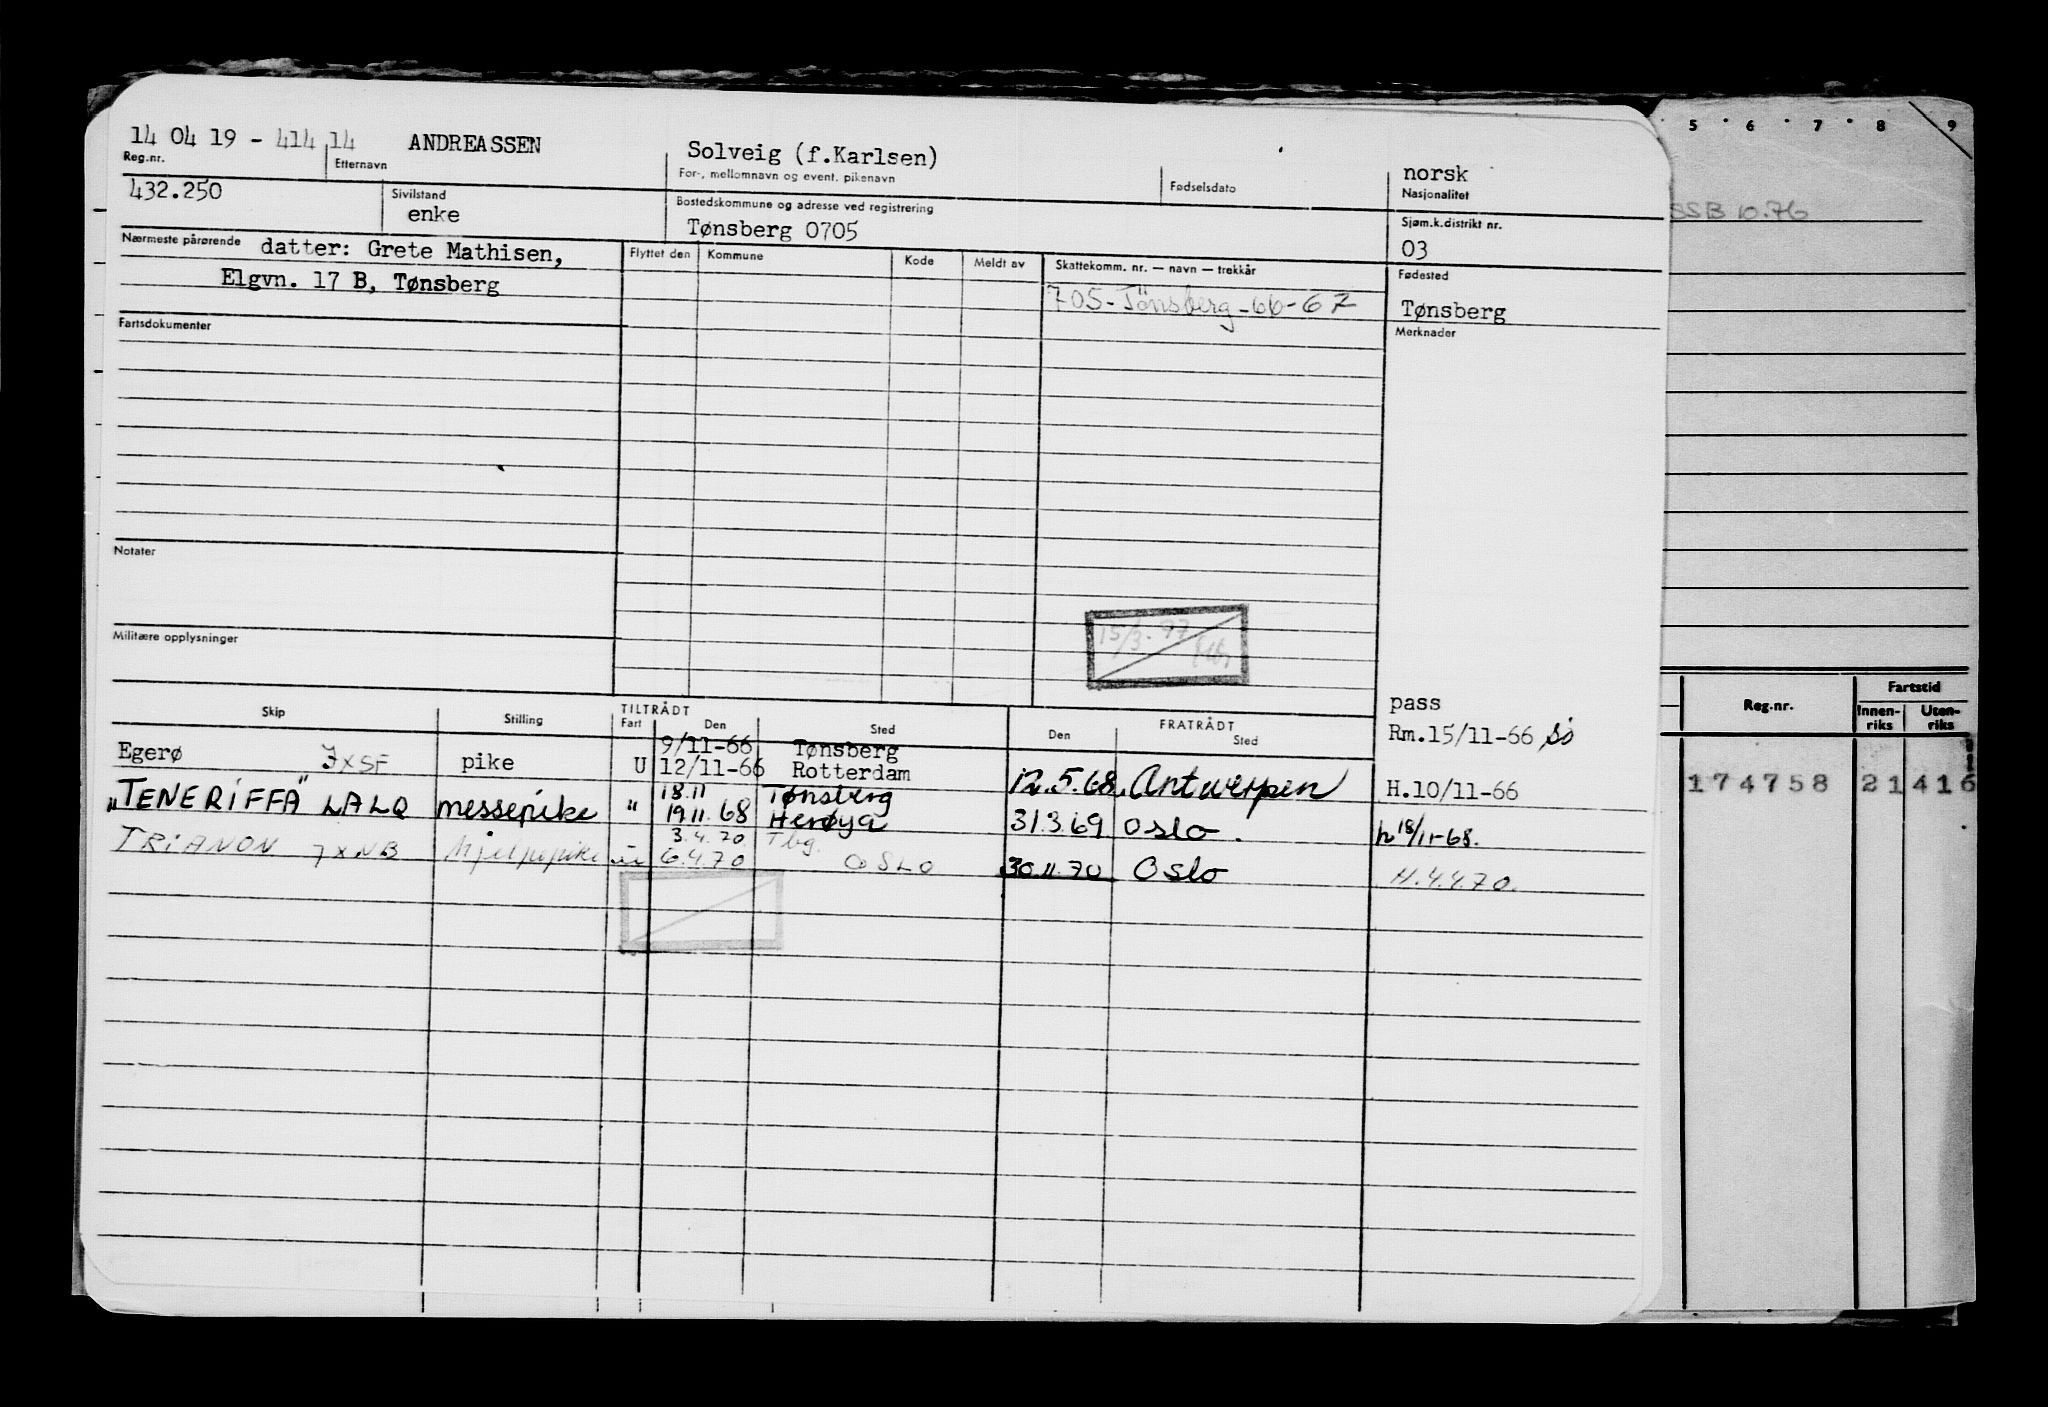 14 04 19 - 414 14 ANDREASSEN Solveig (f.Karlsen) norsk
Reg.nr. Etternavn For-, mellomnavn og event. pikenavn Fødselsdato Nasjonalitet
432.250 Sivilstand Bostedskommune og adresse ved registrering Sjøm.k.distrikt nr.
enke Tønsberg 0705 03
Nærmeste pårørende datter: Grete Mathisen, Flyttet den Kommune Kode Meldt av Skattekomm. nr. — navn — trekkår Fødested
Elgvn. 17 B, Tønsberg 705-Tönsberg-66-67 Tønsberg
Fartsdokumenter Merknader
Notater
15/3-97
Militære opplysninger
pass
Skip Stilling TILTRÅDT Fart Den Sted FRATRÅDT Den Sted
Rm.15/11-66
9/11-66 Tønsberg
Egerø JXSF pike U 12/11-66 Rotterdam 12.5.68 Antwerpen H.10/11-66
18.11 Tønsberg
„TENERIFFA" LALQ messepike " 19.11.68 Herøya 31.3.69 Oslo. h 18/11-68.
3.4.70. Tbg.
TRIANON JXNB hjelpepike 6.4.70 OSLO 30.11.70 Oslo H.4.4.70.
5 6 7 8 9
SSB 10.76
Reg.nr. Fartstid
Innen-riks Uten-riks
174758 21 416